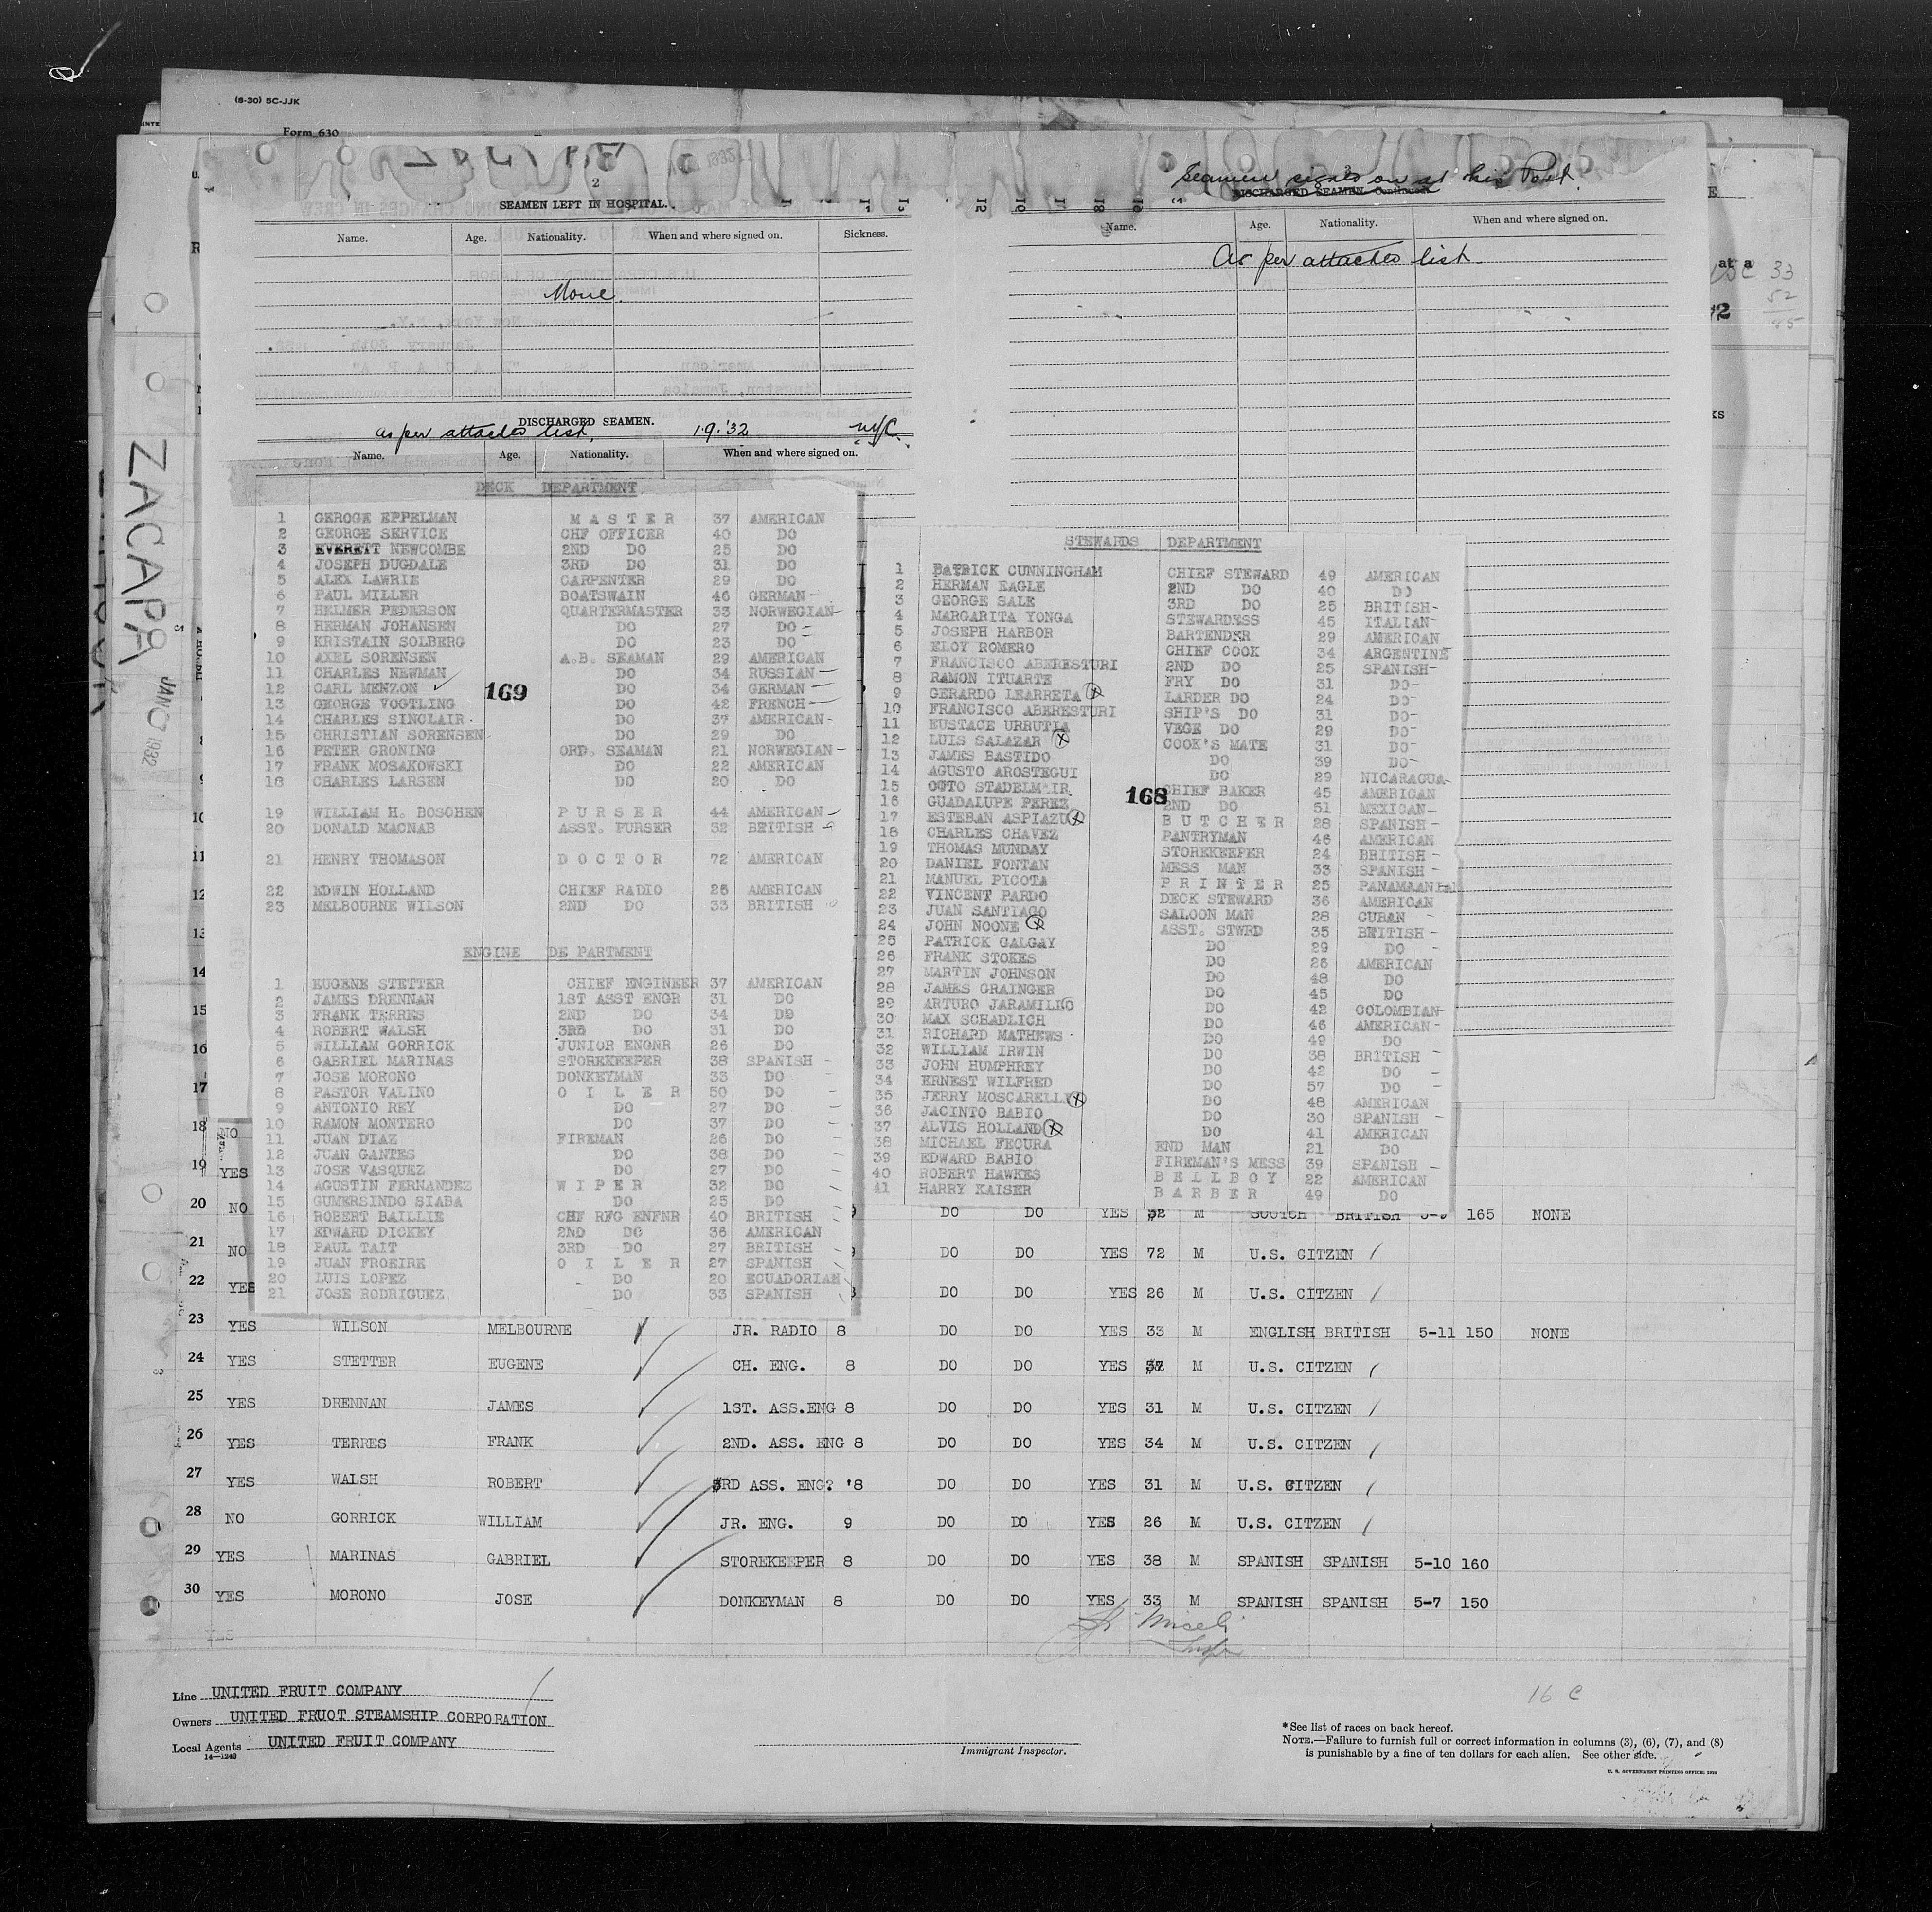 (8-30) 5C-JJK
Form 630
2
SEAMEN LEFT IN HOSPITAL.
Name. Age. Nationality. When and where signed on. Sickness.
None.
DISCHARGED SEAMEN.
as per attached list, 1.9.'32 NYC.
Name. Age. Nationality. When and where signed on.
3
Seamen signed on at this Port.
DISCHARGED SEAMEN—Continued
Name. Age. Nationality. When and where signed on.
As per attached list
ZACAPA
JAN 1932
33
52
85
DECK DEPARTMENT
1 GEROGE EPPELMAN M A S T E R 37 AMERICAN
2 GEORGE SERVICE CHF OFFICER 40 DO
3 EVERETT NEWCOMBE 2ND DO 25 DO
4 JOSEPH DUGDALE 3RD DO 31 DO
5 ALEX LAWRIE CARPENTER 29 DO
6 PAUL MILLER BOATSWAIN 46 GERMAN
7 HELMER PEDERSON QUARTERMASTER 33 NORWEGIAN
8 HERMAN JOHANSEN DO 27 DO
9 KRISTAIN SOLBERG DO 23 DO
10 AXEL SORENSEN A.B. SEAMAN 29 AMERICAN
11 CHARLES NEWMAN DO 34 RUSSIAN
12 CARL MENZON DO 34 GERMAN
13 GEORGE VOGTLING DO 42 FRENCH
14 CHARLES SINCLAIR DO 37 AMERICAN
15 CHRISTIAN SORENSEN DO 29 DO
16 PETER GRONING ORD. SEAMAN 21 NORWEGIAN
17 FRANK MOSAKOWSKI DO 22 AMERICAN
18 CHARLES LARSEN DO 20 DO
169
19 WILLIAM H. BOSCHEN P U R S E R 44 AMERICAN
20 DONALD MACNAB ASST. PURSER 32 BRITISH
21 HENRY THOMASON D O C T O R 72 AMERICAN
22 EDWIN HOLLAND CHIEF RADIO 26 AMERICAN
23 MELBOURNE WILSON 2ND DO 33 BRITISH
ENGINE DE PARTMENT
1 EUGENE STETTER CHIEF ENGINEER 37 AMERICAN
2 JAMES DRENNAN 1ST ASST ENGR 31 DO
3 FRANK TERRES 2ND DO 34 DO
4 ROBERT WALSH 3RD DO 31 DO
5 WILLIAM GORRICK JUNIOR ENGNR 26 DO
6 GABRIEL MARINAS STOREKEEPER 38 SPANISH
7 JOSE MORONO DONKEYMAN 33 DO
8 PASTOR VALINO O I L E R 50 DO
9 ANTONIO REY DO 27 DO
10 RAMON MONTERO DO 37 DO
11 JUAN DIAZ FIREMAN 26 DO
12 JUAN GANTES DO 38 DO
13 JOSE VASQUEZ DO 27 DO
14 AGUSTIN FERNANDEZ W I P E R 32 DO
15 GUMERSINDO SIABA DO 25 DO
16 ROBERT BAILLIE CHF RFG ENFNR 40 BRITISH
17 EDWARD DICKEY 2ND DO 36 AMERICAN
18 PAUL TAIT 3RD DO 27 BRITISH
19 JUAN FROEIRE O I L E R 27 SPANISH
20 LUIS LOPEZ DO 20 ECUADORIAN
21 JOSE RODRIGUEZ DO 33 SPANISH
STEWARDS DEPARTMENT
1 PATRICK CUNNINGHAM CHIEF STEWARD 49 AMERICAN
2 HERMAN EAGLE 2ND DO 40 DO
3 GEORGE SALE 3RD DO 25 BRITISH
4 MARGARITA YONGA STEWARDESS 45 ITALIAN
5 JOSEPH HARBOR BARTENDER 29 AMERICAN
6 ELOY ROMERO CHIEF COOK 34 ARGENTINE
7 FRANCISCO ABERESTURI 2ND DO 25 SPANISH
8 RAMON ITUARTE FRY DO 31 DO
9 GERARDO LEARRETA LARDER DO 24 DO
10 FRANCISCO ABERESTURI SHIP'S DO 31 DO
11 EUSTACE URRUTIA VEGE DO 29 DO
12 LUIS SALAZAR COOK'S MATE 31 DO
13 JAMES BASTIDO DO 39 DO
14 AGUSTO AROSTEGUI DO 29 NICARAGUA
15 OTTO STADELMAIR CHIEF BAKER 45 AMERICAN
16 GUADALUPE PEREZ 2ND DO 51 MEXICAN
17 ESTEBAN ASPIAZU B U T C H E R 28 SPANISH
18 CHARLES CHAVEZ PANTRYMAN 46 AMERICAN
19 THOMAS MUNDAY STOREKEEPER 24 BRITISH
20 DANIEL FONTAN MESS MAN 33 SPANISH
21 MANUEL PICOTA P R I N T E R 25 PANAMAANIAN
22 VINCENT PARDO DECK STEWARD 36 AMERICAN
23 JUAN SANTIAGO SALOON MAN 28 CUBAN
24 JOHN NOONE ASST. STWRD 35 BRITISH
25 PATRICK GALGAY DO 29 DO
26 FRANK STOKES DO 26 AMERICAN
27 MARTIN JOHNSON DO 48 DO
28 JAMES GRAINGER DO 45 DO
29 ARTURO JARAMILLO DO 42 COLOMBIAN
30 MAX SCHADLICH DO 46 AMERICAN
31 RICHARD MATHEWS DO 49 DO
32 WILLIAM IRWIN DO 38 BRITISH
33 JOHN HUMPHREY DO 42 DO
34 ERNEST WILFRED DO 57 DO
35 JERRY MOSCARELLI DO 48 AMERICAN
36 JACINTO BABIO DO 30 SPANISH
37 ALVIS HOLLAND DO 41 AMERICAN
38 MICHAEL FECURA END MAN 21 DO
39 EDWARD BABIO FIREMAN'S MESS 39 SPANISH
40 ROBERT HAWKES B E L L B O Y 22 AMERICAN
41 HARRY KAISER B A R B E R 49 DO
168
10
11
12
13
14
15
16
17
18 NO
19 YES
20 NO DO DO YES 32 M SCOTCH BRITISH 165 NONE
21 NO DO DO YES 72 M U.S. CITZEN
22 YES DO DO YES 26 M U.S. CITZEN
23 YES WILSON MELBOURNE JR. RADIO 8 DO DO YES 33 M ENGLISH BRITISH 5-11 150 NONE
24 YES STETTER EUGENE CH. ENG. 8 DO DO YES 37 M U.S. CITZEN
25 YES DRENNAN JAMES 1ST. ASS.ENG 8 DO DO YES 31 M U.S. CITZEN
26 YES TERRES FRANK 2ND. ASS. ENG 8 DO DO YES 34 M U.S. CITZEN
27 YES WALSH ROBERT 3RD ASS. ENG? '8 DO DO YES 31 M U.S. CITZEN
28 NO GORRICK WILLIAM JR. ENG. 9 DO DO YES 26 M U.S. CITZEN
29 YES MARINAS GABRIEL STOREKEEPER 8 DO DO YES 38 M SPANISH SPANISH 5-10 160
30 YES MORONO JOSE DONKEYMAN 8 DO DO YES 33 M SPANISH SPANISH 5-7 150
YES
Line UNITED FRUIT COMPANY
Owners UNITED FRUOT STEAMSHIP CORPORATION
Local Agents UNITED FRUIT COMPANY
14—1240
Immigrant Inspector.
16 C
*See list of races on back hereof.
NOTE.—Failure to furnish full or correct information in columns (3), (6), (7), and (8)
is punishable by a fine of ten dollars for each alien. See other side.
U. S. GOVERNMENT PRINTING OFFICE: 1929